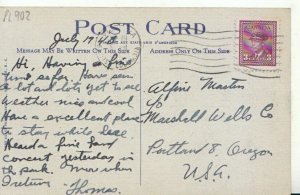 PL902
POST CARD
MESSAGE MAY BE WRITTEN ON THIS SIDE
ADDRESS ONLY ON THIS SIDE
CANADA
3 3
July 17
Hi, Having a fine
time so far. Have seen
a lot and lots yet to see
Weather nice and cool
Have a excellent place
to stay while here
Heard a fine band
concert yesterday in
the park. More when
I return
Thomas.
Alfine Martin
c/o
Marshall Wells Co
Portland 8, Oregon
U.S.A.